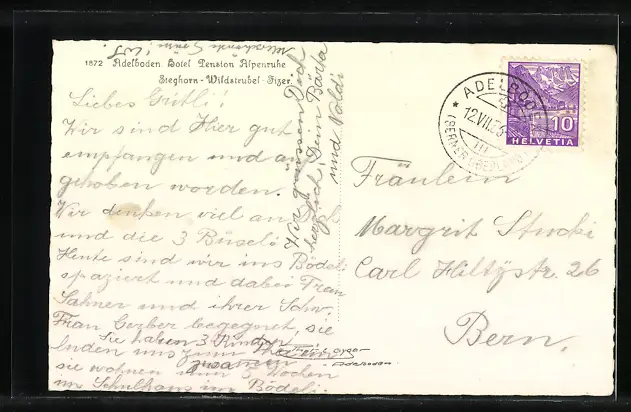 1872 Adelboden Hotel Pension Alpenruhe
Steghorn - Wildstrubel - Fizer
Liebes Gritli!
Wir sind Hier gut
empfangen und an
gehoben worden.
Wir denken viel an Dich
und die 3 Büseli
Heute sind wir ins Bödeli
spaziert und dabei Frau
Sahner und ihrer Schw.
Frau Gerber begegnet, sie
Sie haben 3 Kinder
luden uns zum Thee ein
zusammen
Adelboden
sie wohnen 5 Wochen
im Schulhaus im Bödeli.
Wir grüssen Dich
herzlich Deim Bärta
und Noldi
ADELBODEN
12.VII.36
(BERNER OBERLAND)
10
HELVETIA
Fräulein
Margrit Stucki
Carl Hiltystr. 26
Bern.